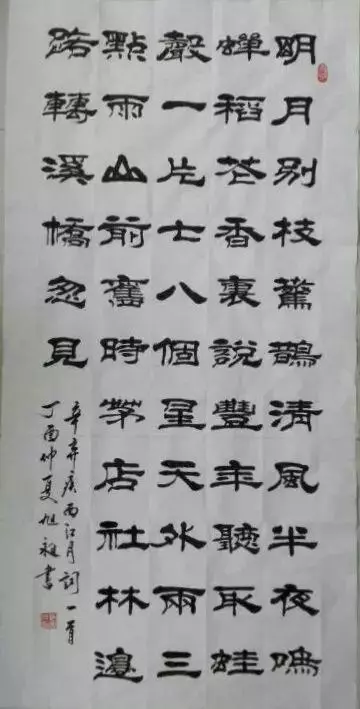 明月别枝驚鵲清風半夜鳴
蟬稻花香裏說豐年聽取蛙
聲一片七八個星天外兩三
點雨山前舊時茅店社林邊
路轉溪橋忽見
辛弃疾西江月詞一首
丁酉仲夏旭書